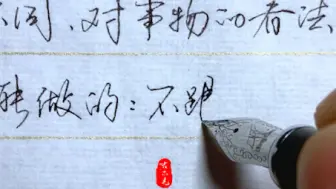 不同、对事物的看法
能做的：不